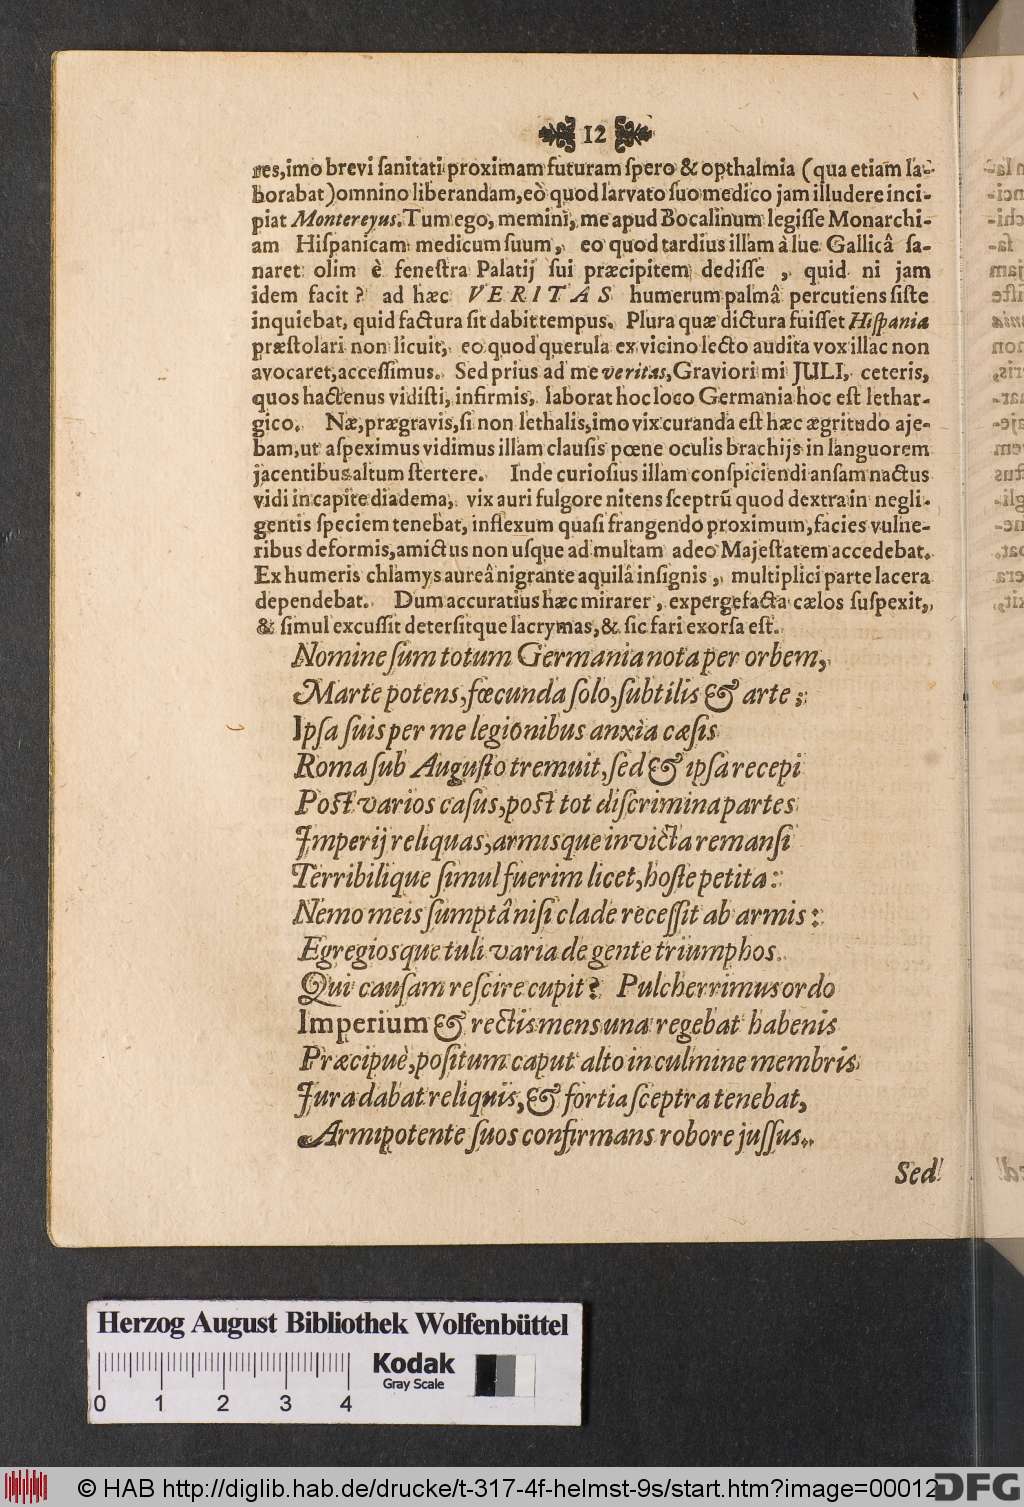 12
res,imo brevi ſanitati proximam futuram ſpero & opthalmia (qua etiam la-
borabat) omnino liberandam, eò quod larvato ſuo medico jam illudere inci-
piat Montereyus. Tum ego, memini, me apud Bocalinum legiſſe Monarchi-
am Hiſpanicam medicum ſuum, eo quod tardius illam à lue Gallicâ ſa-
naret olim è feneſtra Palatij ſui præcipitem dediſſe , quid ni jam
idem facit? ad hæc VERITAS humerum palmâ percutiens ſiſte
inquiebat, quid factura ſit dabit tempus. Plura quæ dictura fuiſſet Hiſpania
præſtolari non licuit, eo quod querula ex vicino lecto audita vox illac non
avocaret, acceſſimus. Sed prius ad me veritas, Graviori mi JULI, ceteris,
quos hactenus vidiſti, infirmis, laborat hoc loco Germania hoc eſt lethar-
gico. Næ, prægravis, ſi non lethalis, imo vix curanda eſt hæc ægritudo aje-
bam, ut aſpeximus vidimus illam clauſis pœne oculis brachijs in languorem
jacentibus altum ſtertere. Inde curioſius illam conſpiciendi anſam nactus
vidi in capite diadema, vix auri fulgore nitens ſceptrũ quod dextra in negli-
gentis ſpeciem tenebat, inflexum quaſi frangendo proximum, facies vulne-
ribus deformis, amictus non uſque ad multam adeo Majeſtatem accedebat.
Ex humeris chlamys aureâ nigrante aquilâ inſignis , multiplici parte lacera
dependebat. Dum accuratius hæc mirarer , expergefacta cælos ſuſpexit,
& ſimul excuſſit deterſitque lacrymas, & ſic fari exorſa eſt.
Nomine ſum totum Germania nota per orbem,
Marte potens, fœcunda ſolo, ſubtilis & arte ;
Ipſa ſuis per me legionibus anxia cæſis
Roma ſub Auguſto tremuit, ſed & ipſa recepi
Poſt varios caſus, poſt tot diſcrimina partes
Imperij reliquas, armisque invicta remanſi
Terribilique ſimul fuerim licet, hoſte petita:
Nemo meis ſumptâ niſi clade receſſit ab armis:
Egregiosque tuli varia de gente triumphos.
Qui cauſam reſcire cupit? Pulcherrimus ordo
Imperium & rectis mens una regebat habenis
Præcipuè, poſitum caput alto in culmine membris
Jura dabat reliquis, & fortia ſceptra tenebat,
Armipotente ſuos confirmans robore juſſus.
Sed
Herzog August Bibliothek Wolfenbüttel
Kodak
Gray Scale
0 1 2 3 4
© HAB http://diglib.hab.de/drucke/t-317-4f-helmst-9s/start.htm?image=00012
DFG